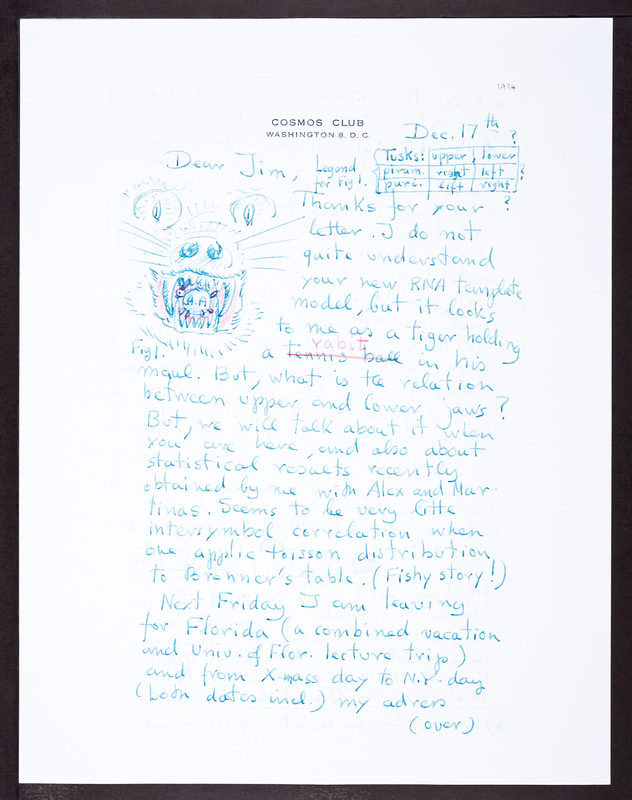 1954
COSMOS CLUB
WASHINGTON 8. D. C.
Dec. 17th
Dear Jim,
Legend
for Fig 1.
?
Tusks: upper, lower
piram. right left ?
puri. left right
?
Thanks for your
letter. I do not
quite understand
your new RNA template
model, but it looks
to me as a tiger holding
rabot
a tennis ball in his
A.A
Fig 1.
maul. But, what is the relation
between upper and lower jaws?
But, we will talk about it when
you are here, and also about
statistical results recently
obtained by me with Alex and Mar-
tinas. Seems to be very litte
intersymbol correlation when
one applie Poisson distribution
to Brenner's table. (Fishy story!)
Next Friday I am leaving
for Florida (a combined vacation
and Univ. of Flor. lecture trip)
and from X-mass day to N.Y-day
(both dates incl.) my adress
(over)